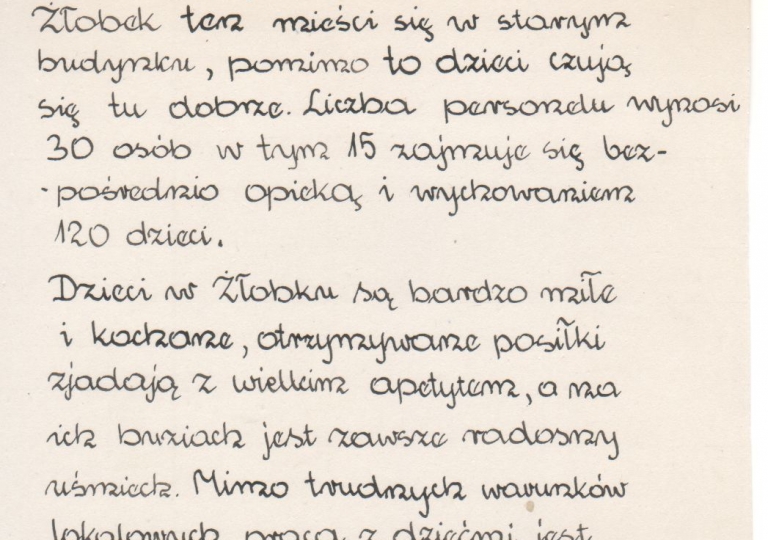 Żłobek ten mieści się w starym
budynku, pomimo to dzieci czują
się tu dobrze. Liczba personelu wynosi
30 osób w tym 15 zajmuje się bez-
-pośrednio opieką i wychowaniem
120 dzieci.
Dzieci w Żłobku są bardzo miłe
i kochane, otrzymywane posiłki
zjadają z wielkim apetytem, a na
ich buziach jest zawsze radosny
uśmiech. Mimo trudnych warunków
lokalowych praca z dziećmi jest